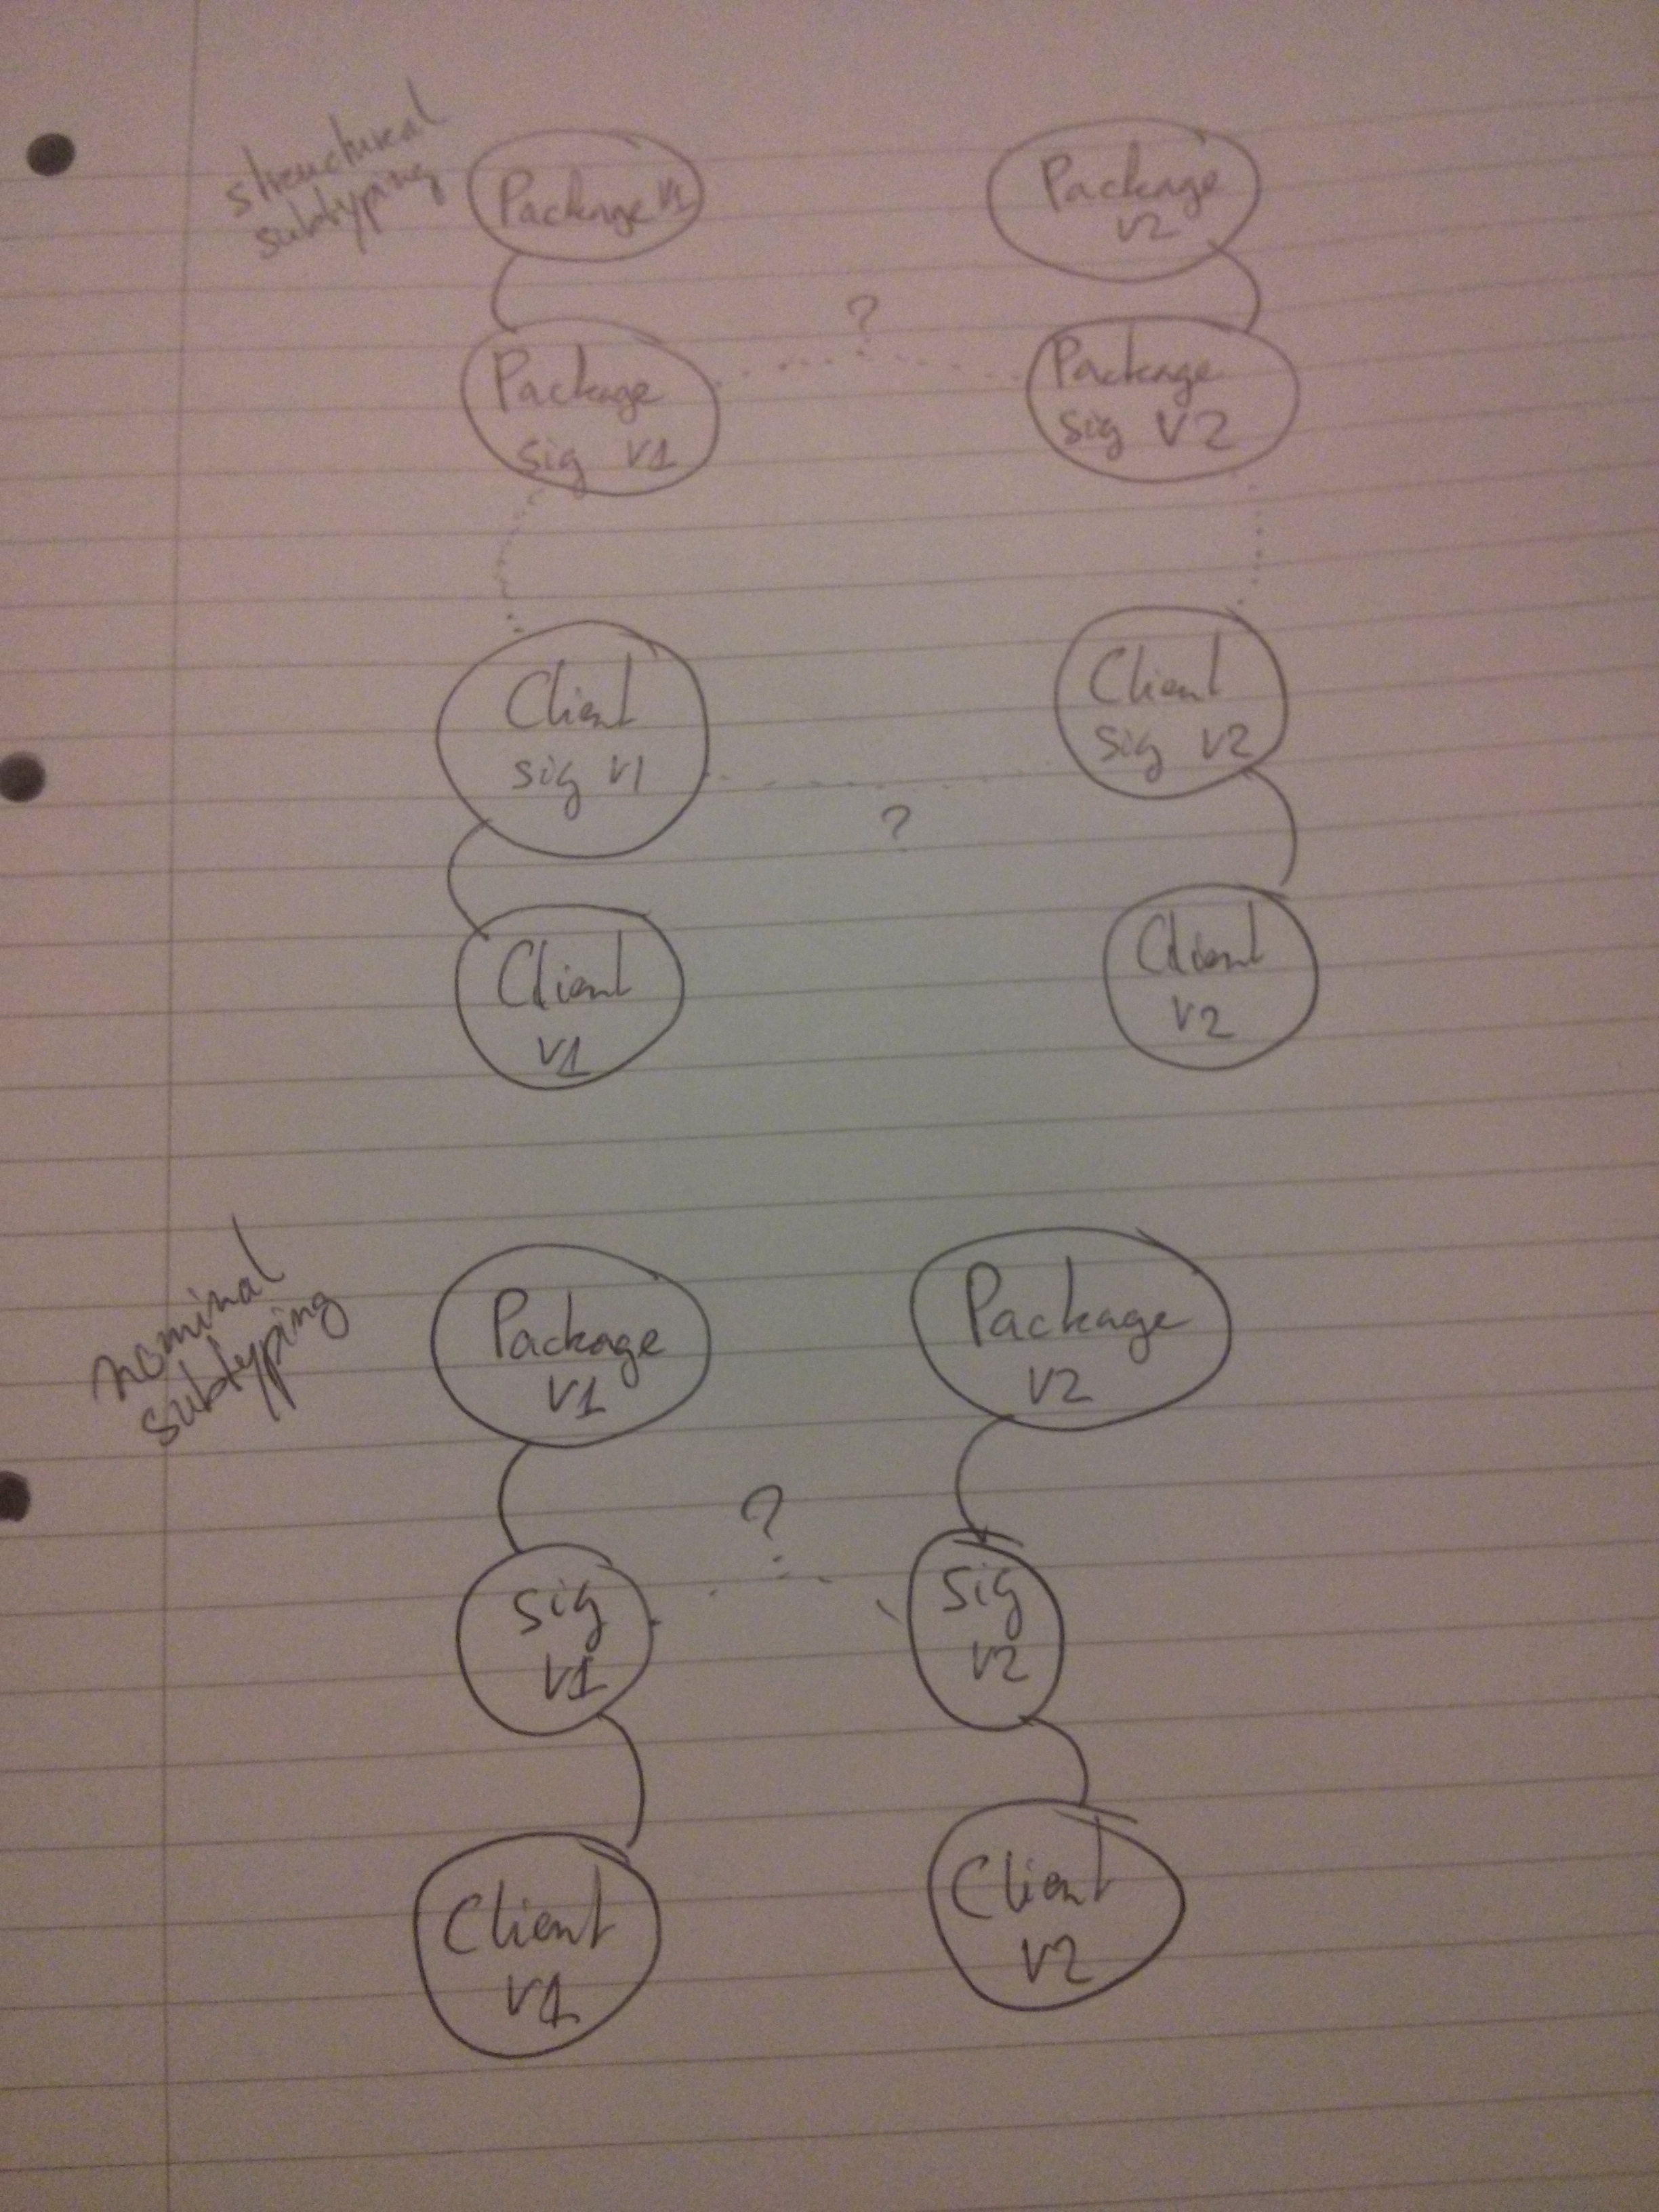 structural
subtyping
Package v1
Package
v2
?
Package
sig v1
Package
sig v2
Client
sig v1
Client
sig v2
?
Client
v1
Client
v2
nominal
subtyping
Package
v1
Package
v2
?
sig
v1
sig
v2
Client
v1
Client
v2